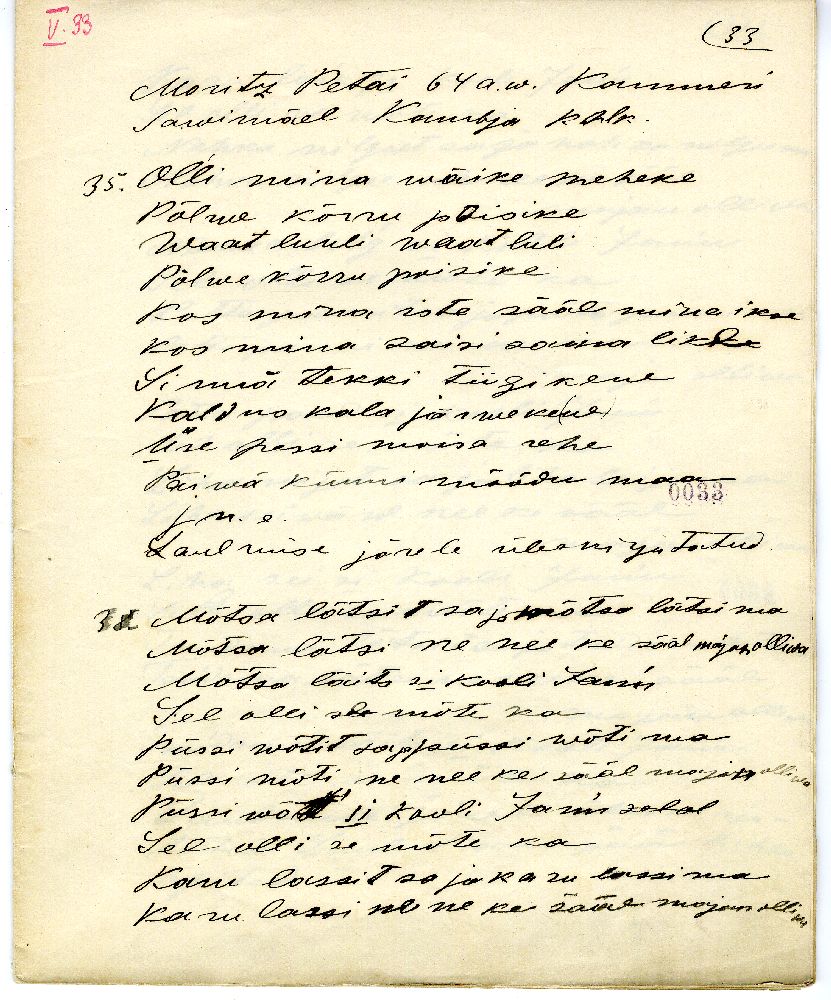 V. 33
(33
Moritz Petai 64 a.w. Kammeri
Sawimäel Kambja khlk.
35. Olli mina wäike meheke
Põlwe kõrru poisike
Waat luuli waat luli
Põlwe kõrru poisike
Kos mina iste sääl mina ikse
Kos mina saisi saina likke
Silmä tekki tiigikene
Kaldno kala järwekene
Üse pessi moisa rehe
Päiwä künni mõõdu maa
0033
j n. e.
Laulmise järele üleskirjutatud
38 Mõtsa lätsit sa ja mõtsa lätsi ma
Mõtsa lätsi ne nee ke sääl majan olliwa
Mõtsa läits si kooli Jaan
Sel olli se mõte ka
Püssi wõtit sa ja püssi wõti ma
Püssi wõti ne nee ke sääl majan olliwa
Püssi wõt si kooli Jaan
Sel olli se mõte ka
Karu lassit sa ja karu lassi ma
Karu lassi ne ne ke sääl majan olliwa